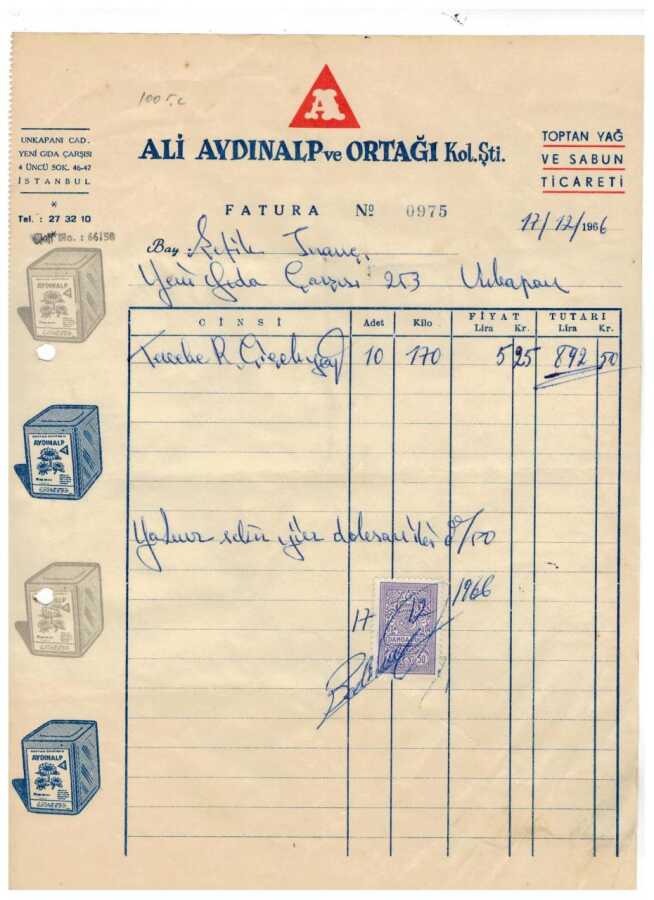 100 TL
A
ALİ AYDINALP ve ORTAĞI Kol. Şti.
UNKAPANI CAD.
YENİ GIDA ÇARŞISI
4 ÜNCÜ SOK. 46-47
İSTANBUL
*
Tel. : 27 32 10
No. : 66158
TOPTAN YAĞ
VE SABUN
TİCARETİ
FATURA No 0975
17/12/1966
Bay : Refik İnanç
Yeni Gıda Çarşısı 253 Unkapanı
CİNSİ Adet Kilo FİYAT Lira Kr. TUTARI Lira Kr.
R. Çiçekyağ 10 170 5 25 892 50
Yalnız sekiz yüz doksan iki 50
17 12 1966
DAMGA
50
AYDINALP
AYDINALP
AYDINALP
AYDINALP